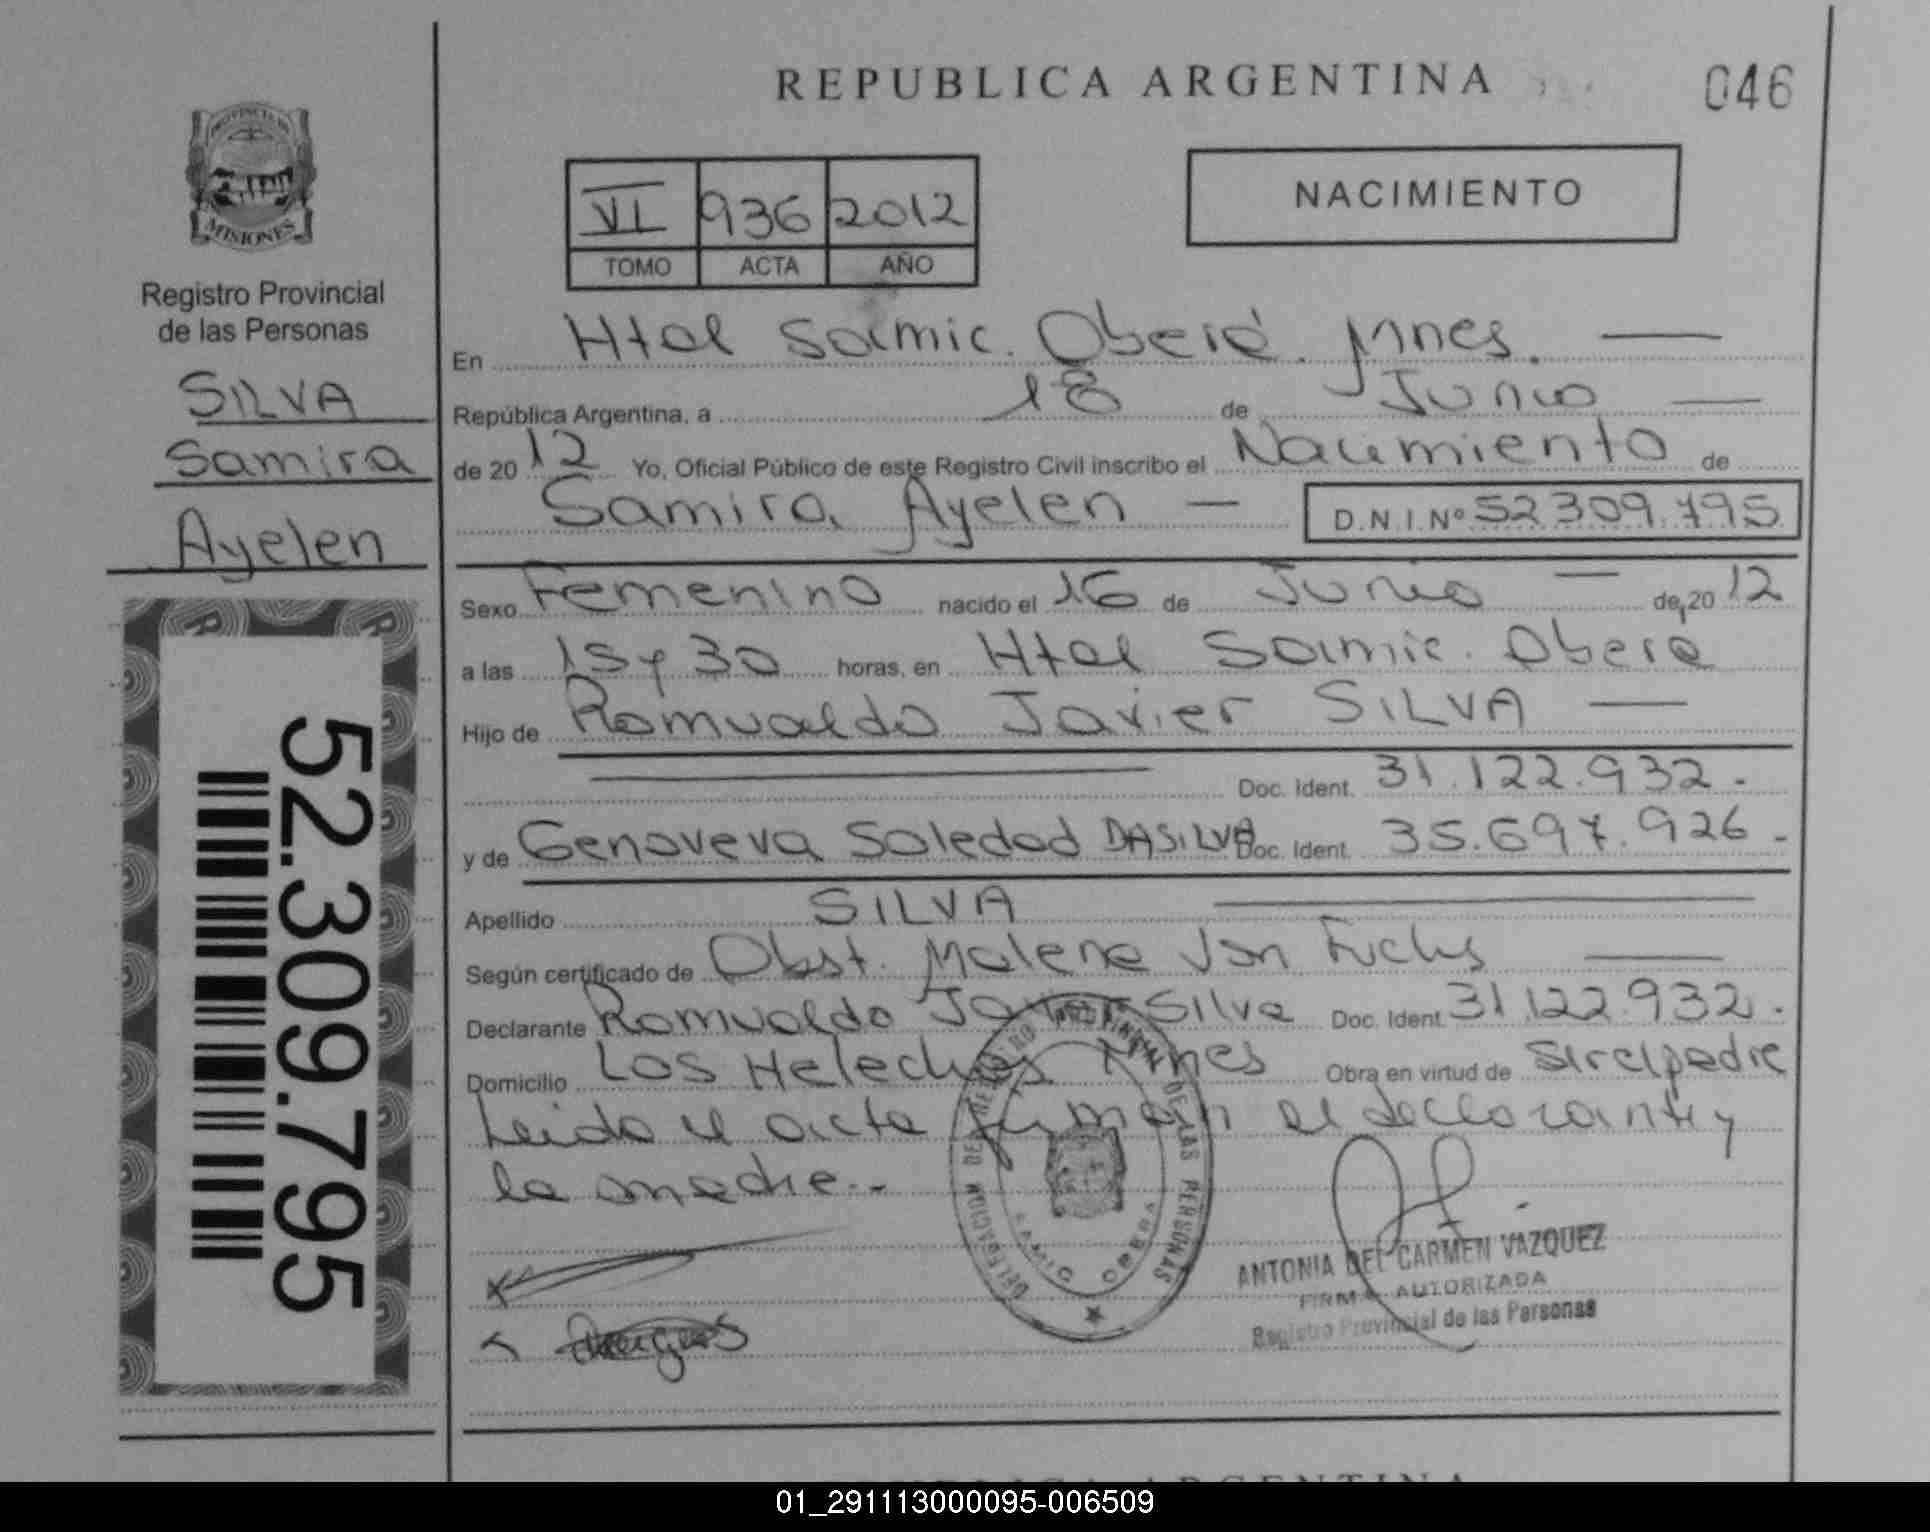 REPUBLICA ARGENTINA
046
PROVINCIA DE
MISIONES
Registro Provincial
de las Personas
SILVA
Samira
Ayelen
52.309.795
VI 936 2012
TOMO ACTA AÑO
NACIMIENTO
En Htal Samic. Oberá. Mnes.
República Argentina, a 18 de Junio
de 20 12 Yo, Oficial Público de este Registro Civil inscribo el Nacimiento de
Samira Ayelen — D.N.I.Nº 52309.795
Sexo Femenino nacido el 16 de Junio de 20 12
a las 15 y 30 horas, en Htal Samic. Obera
Hijo de Romualdo Javier SILVA
Doc. Ident. 31.122.932.
y de Genoveva Soledad DASILVA Doc. Ident. 35.697.926.
Apellido SILVA
Según certificado de Obst. Malena Von Fuchs
Declarante Romualdo Javier Silva Doc. Ident. 31.122.932.
Domicilio Los Helechos Mnes Obra en virtud de
Leida el acta firman el declarante y
la madre.
DELEGACION DEL REGISTRO PROVINCIAL DE LAS PERSONAS
SAMIC OBERA
ANTONIA DEL CARMEN VAZQUEZ
FIRMA AUTORIZADA
Registro Provincial de las Personas
REPUBLICA ARGENTINA
01_291113000095-006509